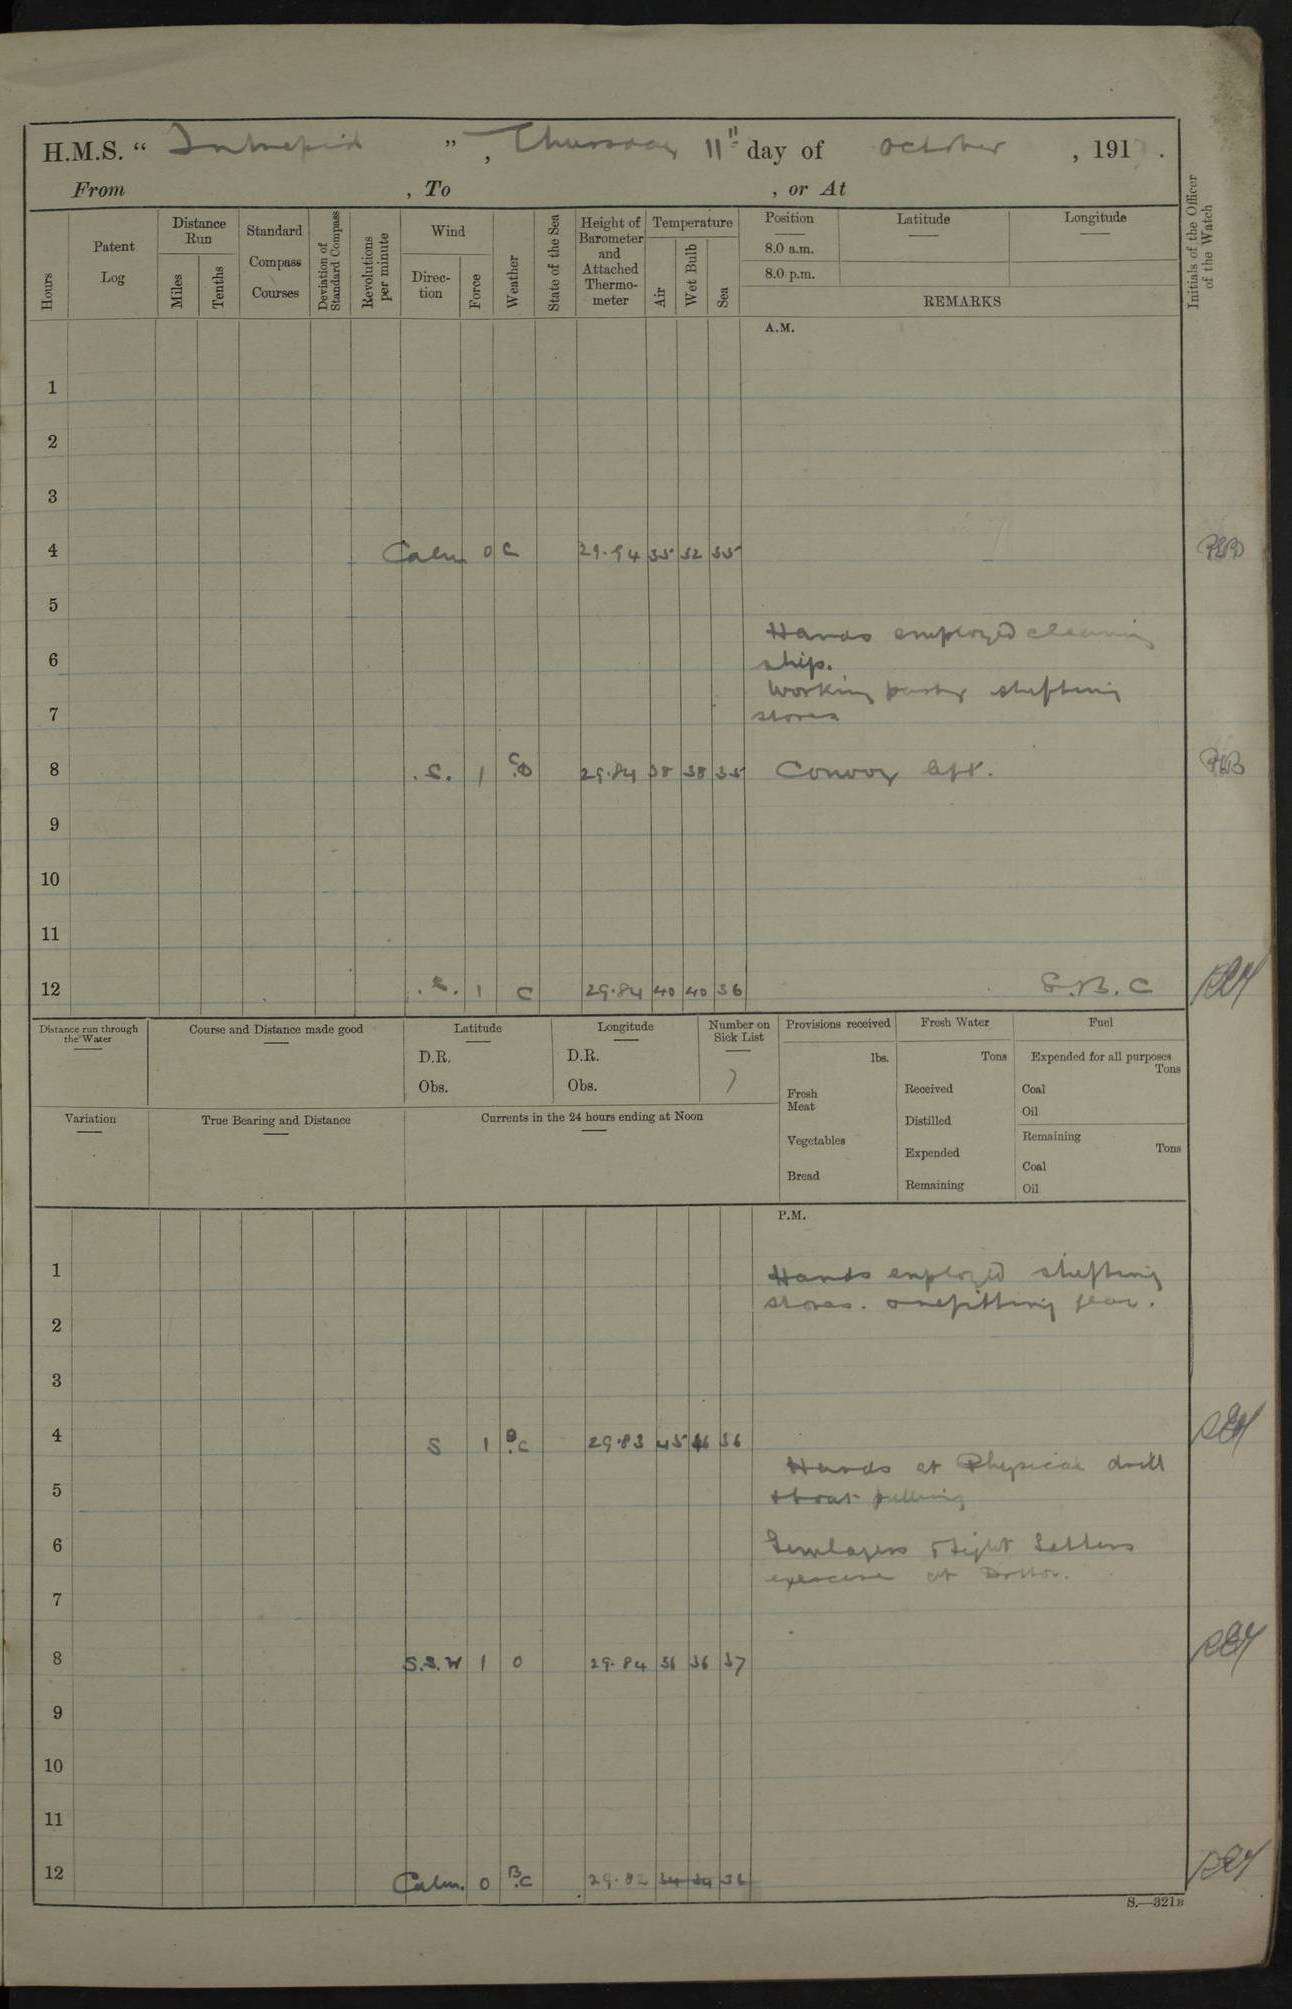 H.M.S. “ Intrepid ” , Thursday 11th day of October , 191 .
From , To , or At
Hours
Patent Log
Distance Run
Miles
Tenths
Standard Compass Courses
Deviation of Standard Compass
Revolutions per minute
Wind
Direc-tion
Force
Weather
State of the Sea
Height of Barometer and Attached Thermo-meter
Temperature
Air
Wet Bulb
Sea
Position
Latitude
Longitude
8.0 a.m.
8.0 p.m.
REMARKS
Initials of the Officer of the Watch
A.M.
1
2
3
4 Calm 0 C 29.94 35 32 35
5
Hands employed cleaning
6 ship.
Working party shifting
7 stores
8 .S. 1 C.D 29.84 38 38 35 Convoy left.
9
10
11
12 .S. 1 C 29.84 40 40 36
Distance run through the Water
Course and Distance made good
Latitude
D.R.
Obs.
Longitude
D.R.
Obs.
Number on Sick List
7
Provisions received
lbs.
Fresh Meat
Vegetables
Bread
Fresh Water
Tons
Received
Distilled
Expended
Remaining
Fuel
Expended for all purposes
Tons
Coal
Oil
Remaining
Tons
Coal
Oil
Variation
True Bearing and Distance
Currents in the 24 hours ending at Noon
P.M.
1 Hands employed shifting
stores. & refitting gear.
2
3
4 S 1 B.C 29.83 45 36
Hands at Physical drill
5 & boat pulling
6 Gunlayers & Sight Setters
exercise at Dotter.
7
8 S.S.W 1 0 29.84 36 36 37
9
10
11
12 Calm. 0 B.C 29.82 34 34 36
S.—321B